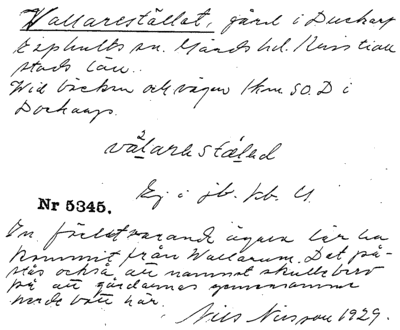 Vallarestället, gård i Ducharp
Esphults sn. Gärds hd. Kristian
stads län.
Wid bäcken och vägen 1 km S.O. D i
Docharp.
vạ̈larestälęd
Ej i jb. kb. U.
Nr 5345.
En förutvarande ägare lär ha
kommit från Wallarum. Det på-
stås också att namnet skulle bero
på att gårdarnas gemensamma
hade varit här.
Nils Nilsson 1929.